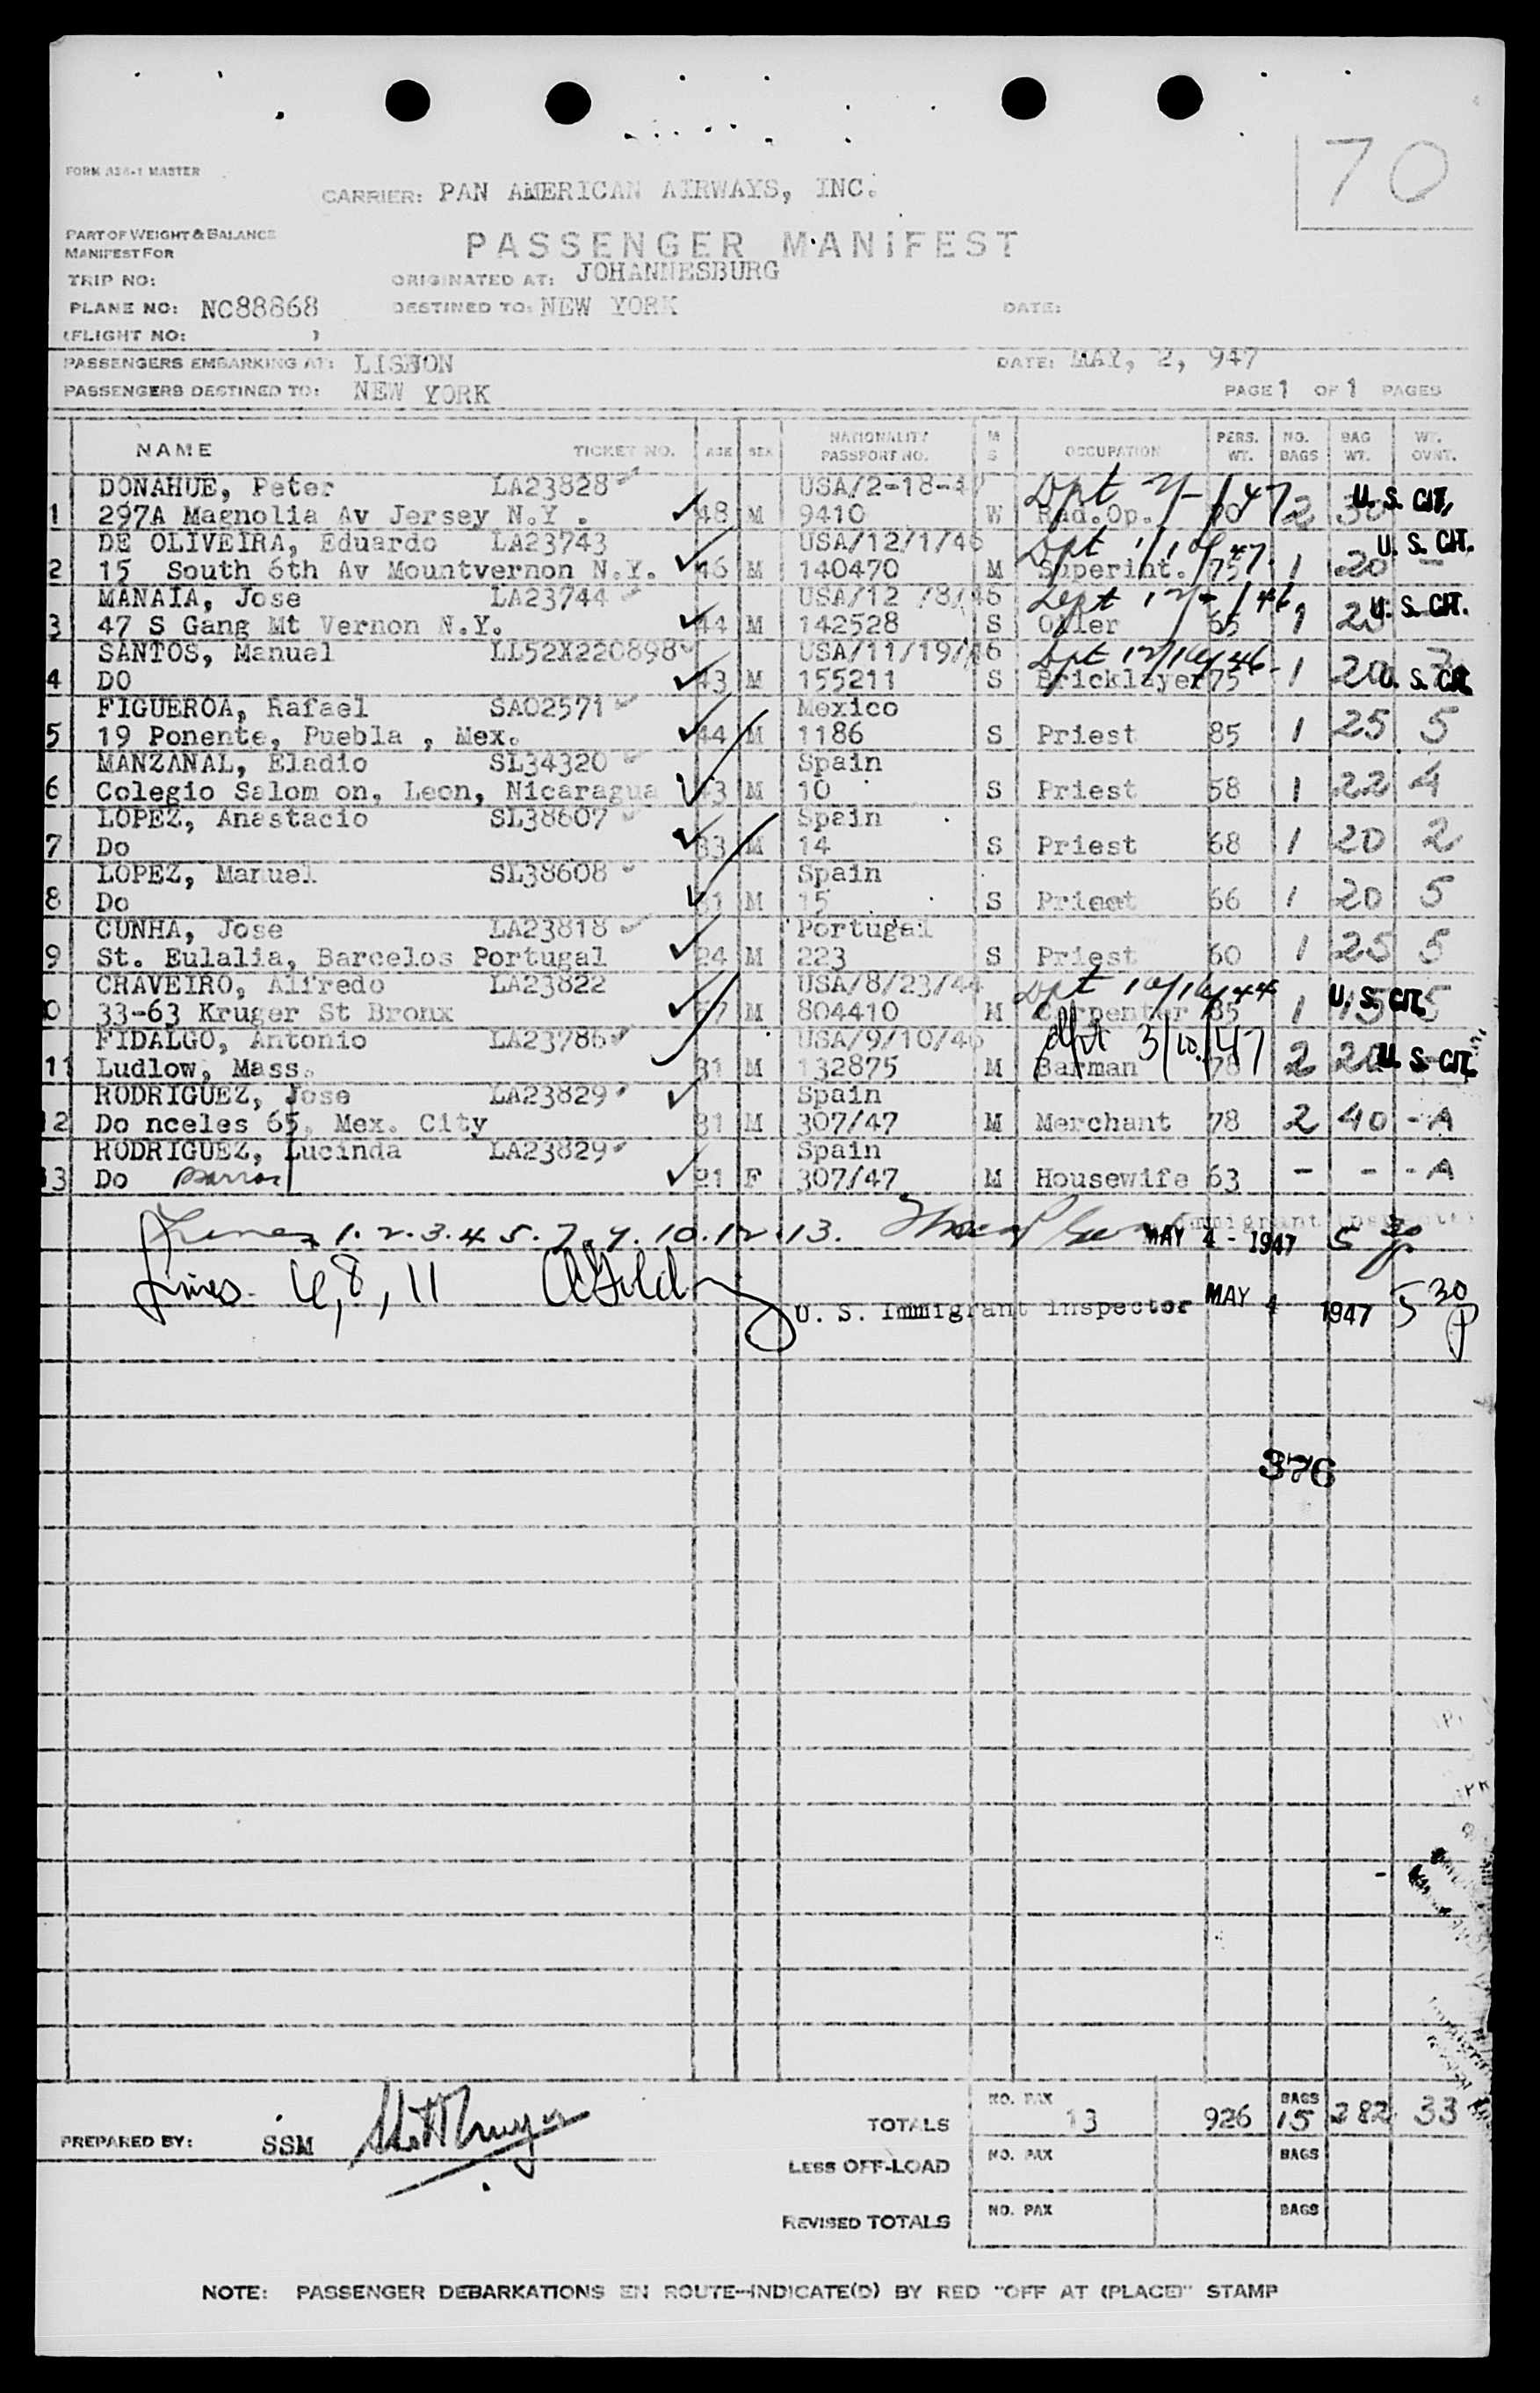 70
FORM AS4-1 MASTER
CARRIER: PAN AMERICAN AIRWAYS, INC.
PART OF WEIGHT & BALANCE
MANIFEST FOR
PASSENGER MANIFEST
TRIP NO: ORIGINATED AT: JOHANNESBURG
PLANE NO: NC88868 DESTINED TO: NEW YORK DATE:
(FLIGHT NO: )
PASSENGERS EMBARKING AT: LISBON DATE: MAY, 2, 947
PASSENGERS DESTINED TO: NEW YORK PAGE 1 OF 1 PAGES
NAME TICKET NO. AGE SEX NATIONALITY PASSPORT NO. M S OCCUPATION PERS. WT. NO. BAGS BAG WT. WT. OVWT.
DONAHUE, Peter LA23828 USA/2-18-4
1 297A Magnolia Av Jersey N.Y . 48 M 9410 W Rad.Op. 2 30 U. S. CIT.
DE OLIVEIRA, Eduardo LA23743 USA/12/1/46
2 15 South 6th Av Mountvernon N.Y. 46 M 140470 M Superint. 75 1 20 - U. S. CIT.
MANAIA, Jose LA23744 USA/12 /8/46
3 47 S Gang Mt Vernon N.Y. 44 M 142528 S Oiler 65 1 U. S. CIT.
SANTOS, Manuel LL52X220898 USA/11/19/46 Dpt 12/16/46
4 DO 43 M 155211 S Bricklayer 75 1 20 7 U. S. CIT.
FIGUEROA, Rafael SA02571 Mexico
5 19 Ponente, Puebla , Mex. 44 M 1186 S Priest 85 1 25 5
MANZANAL, Eladio SL34320 Spain
6 Colegio Salom on, Leon, Nicaragua 43 M 10 S Priest 58 1 22 4
LOPEZ, Anastacio SL38607 Spain
7 Do 33 M 14 S Priest 68 1 20 2
LOPEZ, Manuel SL38608 Spain
8 Do 31 M 15 S Priest 66 1 20 5
CUNHA, Jose LA23818 Portugal
9 St. Eulalia, Barcelos Portugal 24 M 223 S Priest 60 1 25 5
CRAVEIRO, Alfredo LA23822 USA/8/23/44 Dpt 10/16/44
0 33-63 Kruger St Bronx 57 M 804410 M Carpenter 85 1 15 5 U. S. CIT.
FIDALGO, Antonio LA23786 USA/9/10/46 dpt 3/10/47
11 Ludlow, Mass. 31 M 132875 M Barman 78 2 20 U. S. CIT.
RODRIGUEZ, Jose LA23829 Spain
12 Do nceles 65, Mex. City 31 M 307/47 M Merchant 78 2 40 - A
RODRIGUEZ, Lucinda LA23829 Spain
13 Do Barros 21 F 307/47 M Housewife 63 - - - A
Lines 1.2.3.4 5.7.9.10.12.13. Immigrant Inspector MAY 4 - 1947 5 30 p
Lines 6, 8, 11 U. S. Immigrant Inspector MAY 4 1947 5 30 p
376
PREPARED BY: SSM
TOTALS NO. PAX 13 926 BAGS 15 282 33
LESS OFF-LOAD NO. PAX BAGS
REVISED TOTALS NO. PAX BAGS
NOTE: PASSENGER DEBARKATIONS EN ROUTE—INDICATE(D) BY RED "OFF AT (PLACE)" STAMP